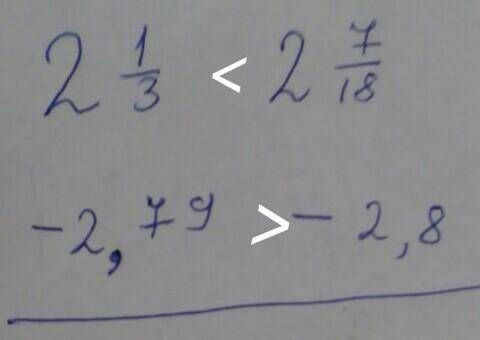 2 1/3 < 2 7/18
-2,79 > - 2,8